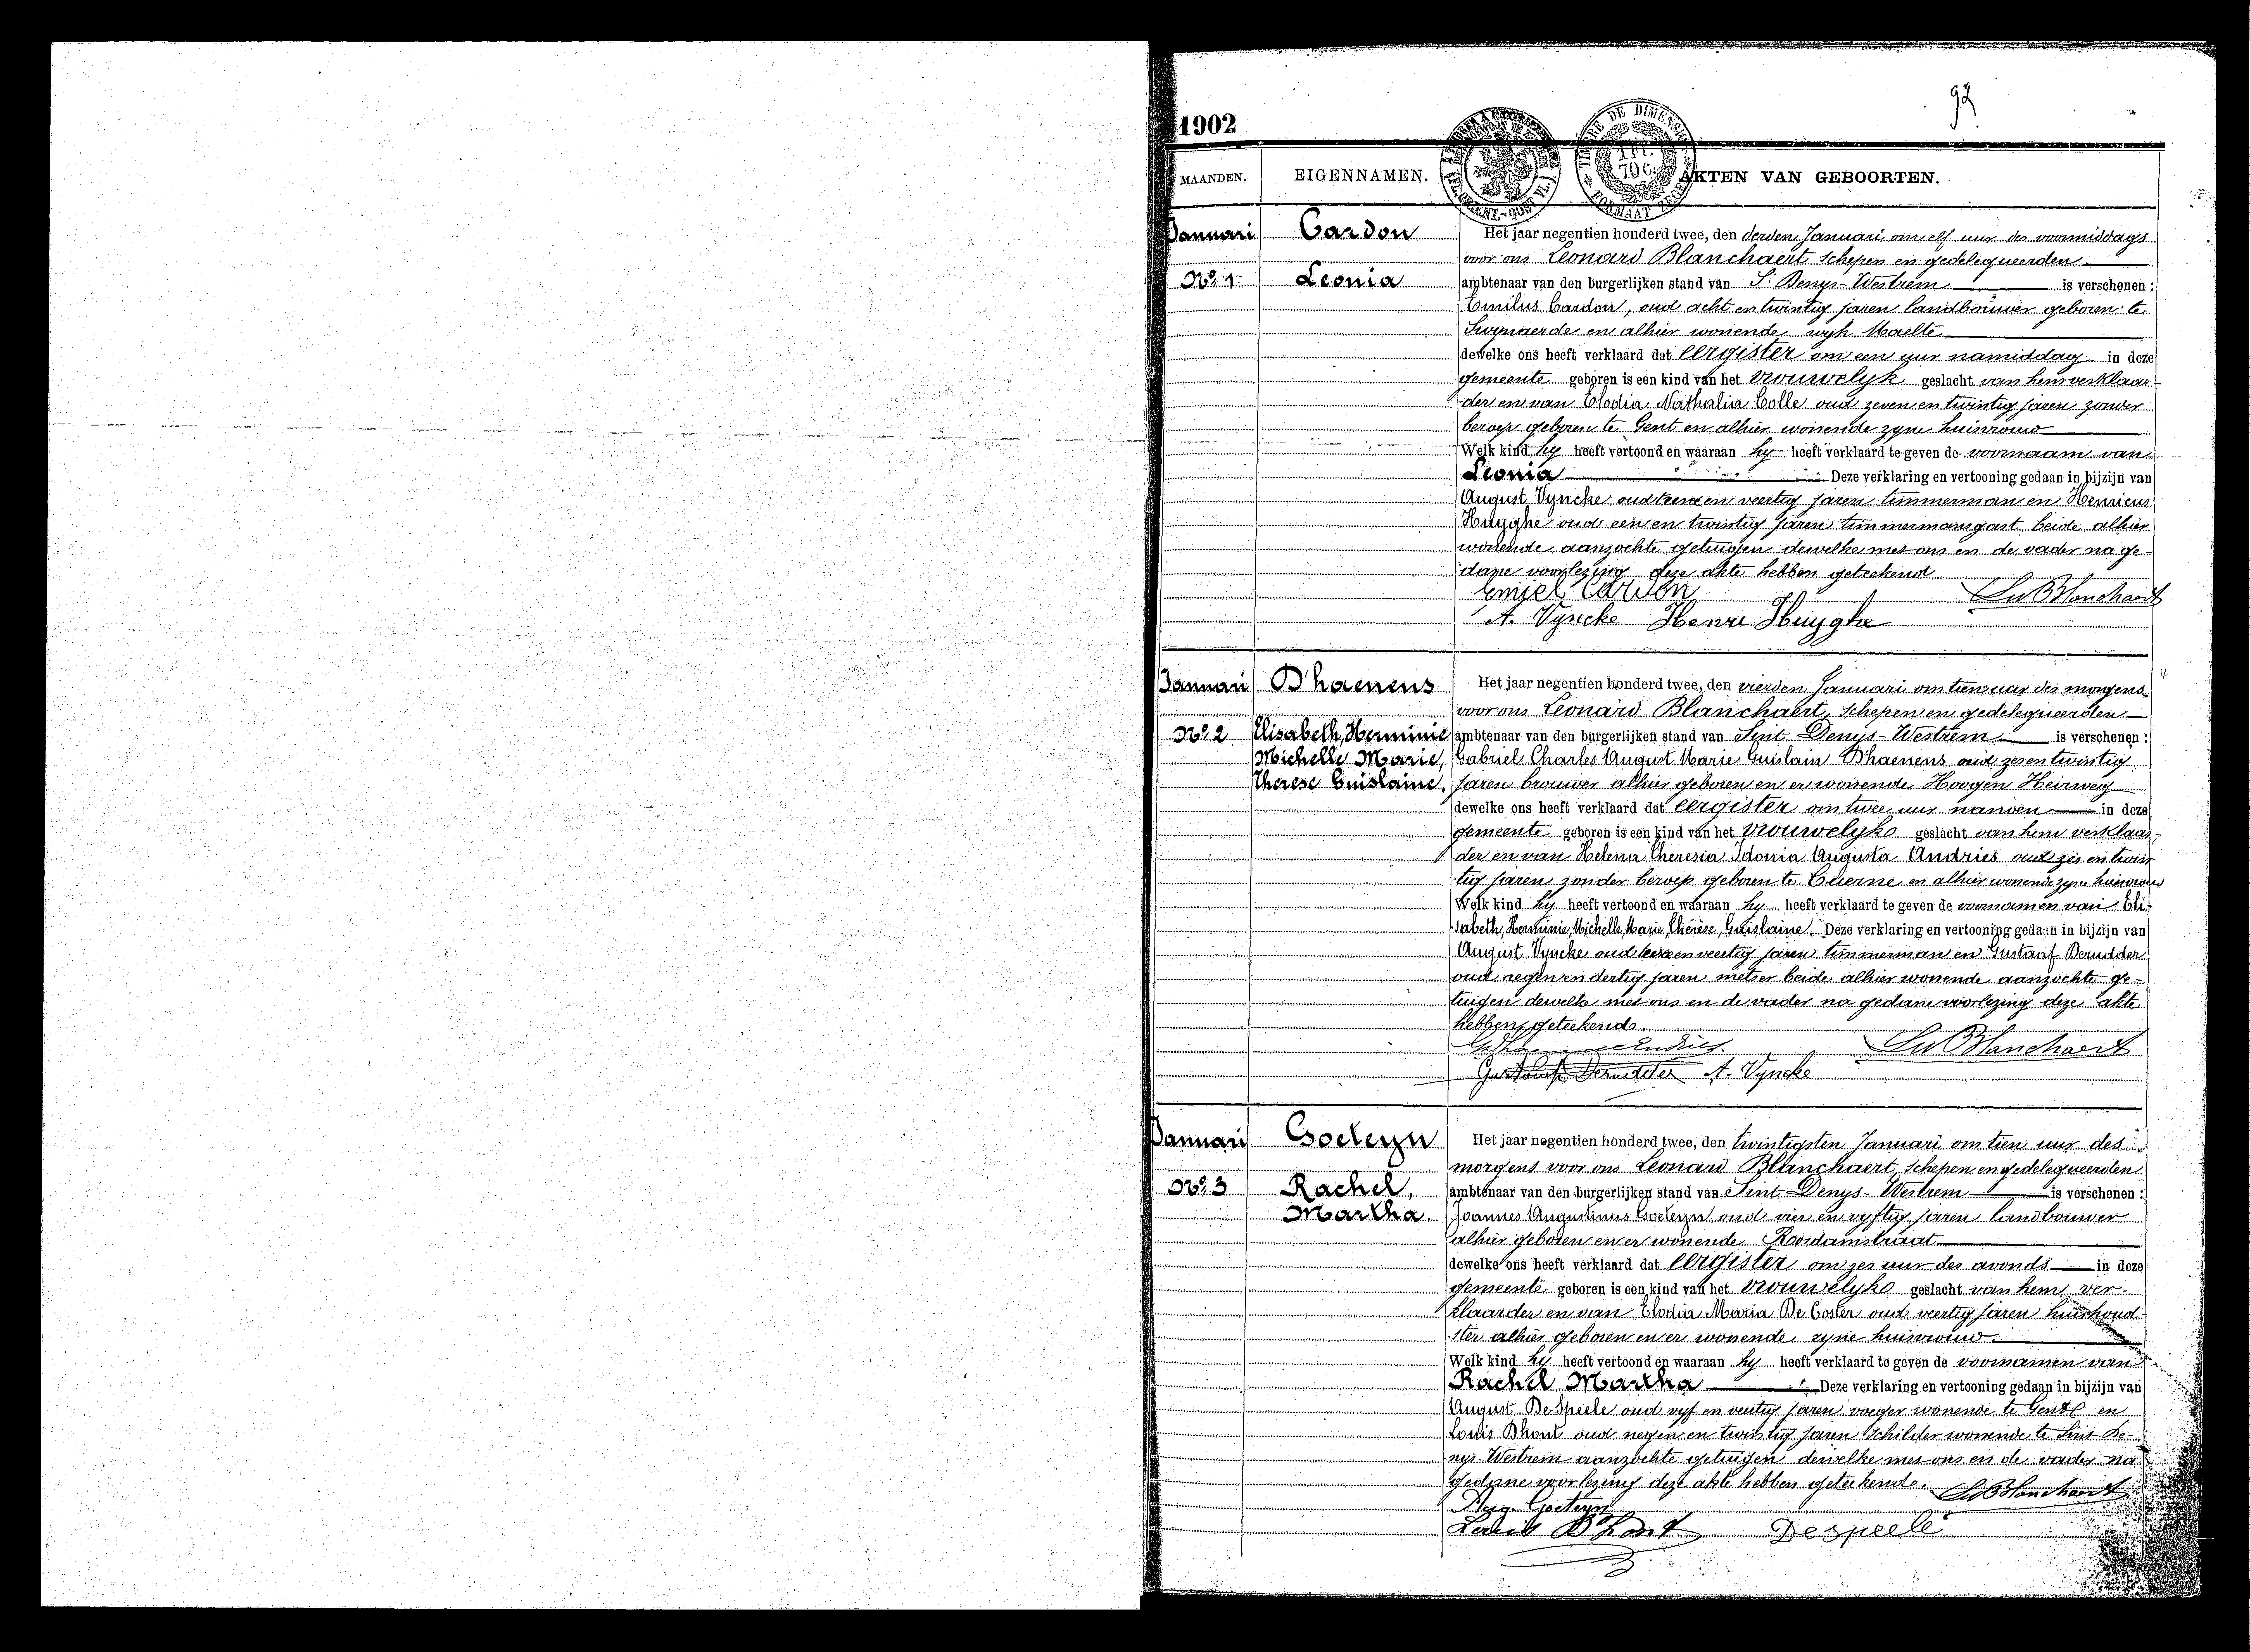 92
1902
MAANDEN. EIGENNAMEN. AKTEN VAN GEBOORTEN.
Januari Cardon Het jaar negentien honderd twee, den derden Januari om elf uur des voormiddags
voor ons Leonard Blanchaert, Schepen en gedelegueerden
No. 1 Leonia ambtenaar van den burgerlijken stand van St Denys-Westrem is verschenen :
Emilus Cardon, oud acht en twintig jaren landbouwer geboren te
Swynaerde en alhier wonende wyk Maelte
dewelke ons heeft verklaard dat eergister om een uur namiddag in deze
gemeente geboren is een kind van het vrouwelyk geslacht van hem verklaar-
der en van Elodia Nathalia Colle oud zeven en twintig jaren zonder
beroep geboren te Gent en alhier wonende zyne huisvrouw
Welk kind hy heeft vertoond en waaraan hy heeft verklaard te geven de voornaam van
Leonia Deze verklaring en vertooning gedaan in bijzijn van
August Vyncke oud en veertig jaren timmerman en Henricus
Huyghe oud een en twintig jaren timmermansgast beide alhier
wonende aanzochte getuigen dewelke met ons en de vader na ge-
dane voorlezing deze akte hebben geteekend
Emiel Cardon Leo Blanchaert
A. Vyncke Henri Huyghe
Januari D'haenens Het jaar negentien honderd twee, den vierden Januari om tien uur des morgens
voor ons Leonard Blanchaert, Schepen en gedelegueerden
No. 2 Elisabeth, Herminie ambtenaar van den burgerlijken stand van Sint Denys-Westrem is verschenen :
Michelle Marie, Gabriel Charles August Marie Guislain D'haenens oud zes en twintig
Therese Guislaine. jaren brouwer alhier geboren en er wonende Hoogen Heirweg
dewelke ons heeft verklaard dat eergister om twee uur nanoen in deze
gemeente geboren is een kind van het vrouwelyks geslacht van hem verklaar-
der en van Helena Theresia Idonia Augusta Andries oud zes en twin
tig jaren zonder beroep geboren te Cuerne en alhier wonende zyne huisvrouw
Welk kind hy heeft vertoond en waaraan hy heeft verklaard te geven de voornamen van Eli-
sabeth, Herminie, Michelle, Marie, Thérèse, Guislaine. Deze verklaring en vertooning gedaan in bijzijn van
August Vyncke oud en veertig jaren timmerman en Gustaaf Derudder
oud negen en dertig jaren metser beide alhier wonende aanzochte ge-
tuigen dewelke met ons en de vader na gedane voorlezing deze akte
hebben geteekend.
Leo Blanchaert
Gustaaf Derudder A. Vyncke
Januari Goeteyn Het jaar negentien honderd twee, den twintigsten Januari om tien uur des
morgens voor ons Leonard Blanchaert, Schepen en gedelegueerden
No. 3 Rachel, ambtenaar van den burgerlijken stand van Sint Denys-Westrem is verschenen :
Martha. Joannes Augustinus Goeteyn oud vier en vyftig jaren landbouwer
alhier geboren en er wonende Roosdamstraat
dewelke ons heeft verklaard dat eergister om zes uur des avonds in deze
gemeente geboren is een kind van het vrouwelyks geslacht van hem ver-
klaarder en van Elodia Maria De Coster oud veertig jaren huishoud-
ster alhier geboren en er wonende zyne huisvrouw
Welk kind hy heeft vertoond en waaraan hy heeft verklaard te geven de voornamen van
Rachel Martha Deze verklaring en vertooning gedaan in bijzijn van
August De Speele oud vyf en veertig jaren voeger wonende te Gent en
Louis Dhont oud negen en twintig jaren Schilder wonende te Sint De-
nys-Westrem aanzochte getuigen dewelke met ons en de vader na
gedane voorlezing deze akte hebben geteekend. Leo Blanchaert
Aug. Goeteyn
Louis D'hont Despeele